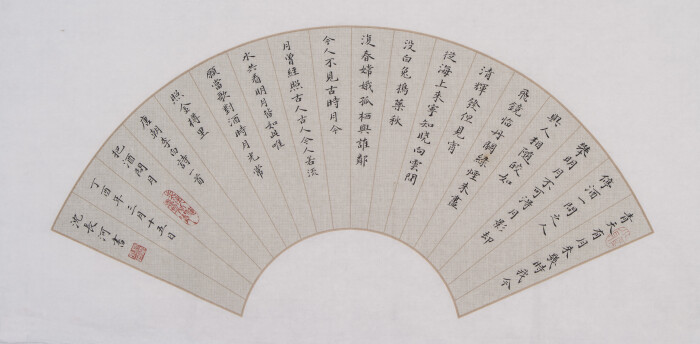 青天有月来幾時我今
停酒一問之人
攀明月不可得月影却
與人相隨皎如
飛鏡临丹闕綠煙未盡
清輝發但見宵
從海上来寧知曉向雲間
没白兔搗藥秋
復春嫦娥孤栖與誰鄰
今人不見古時月今
月曾經照古人古人今人若流
水共看明月皆如此唯
願當歌對酒時月光常
照金樽里
唐朝李白詩一首
把酒問月
丁酉年三月十五日
沈長河書